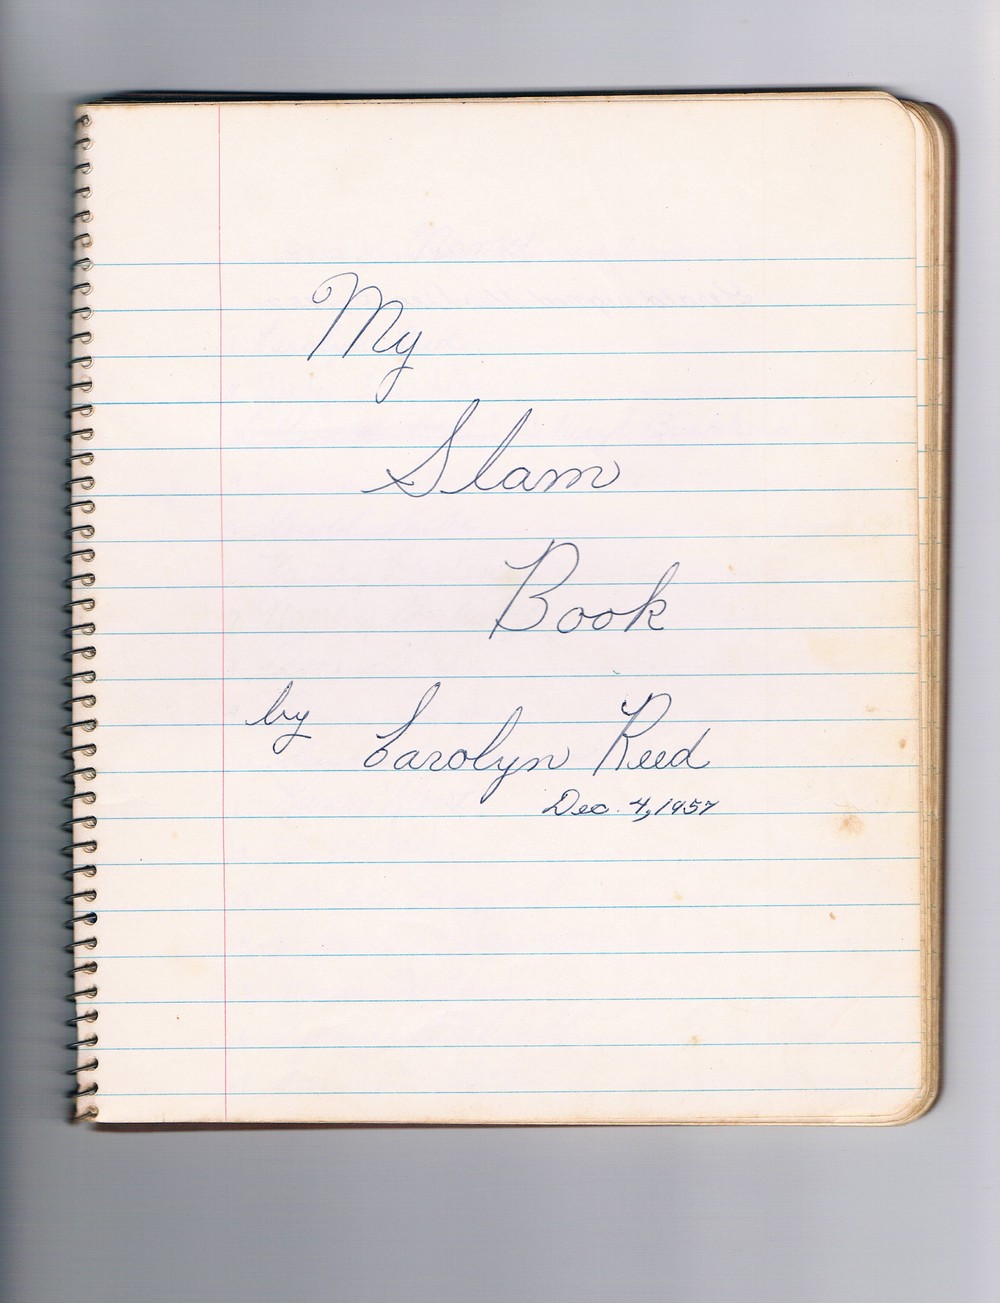 My
Slam
Book
by Carolyn Reed
Dec. 4, 1957